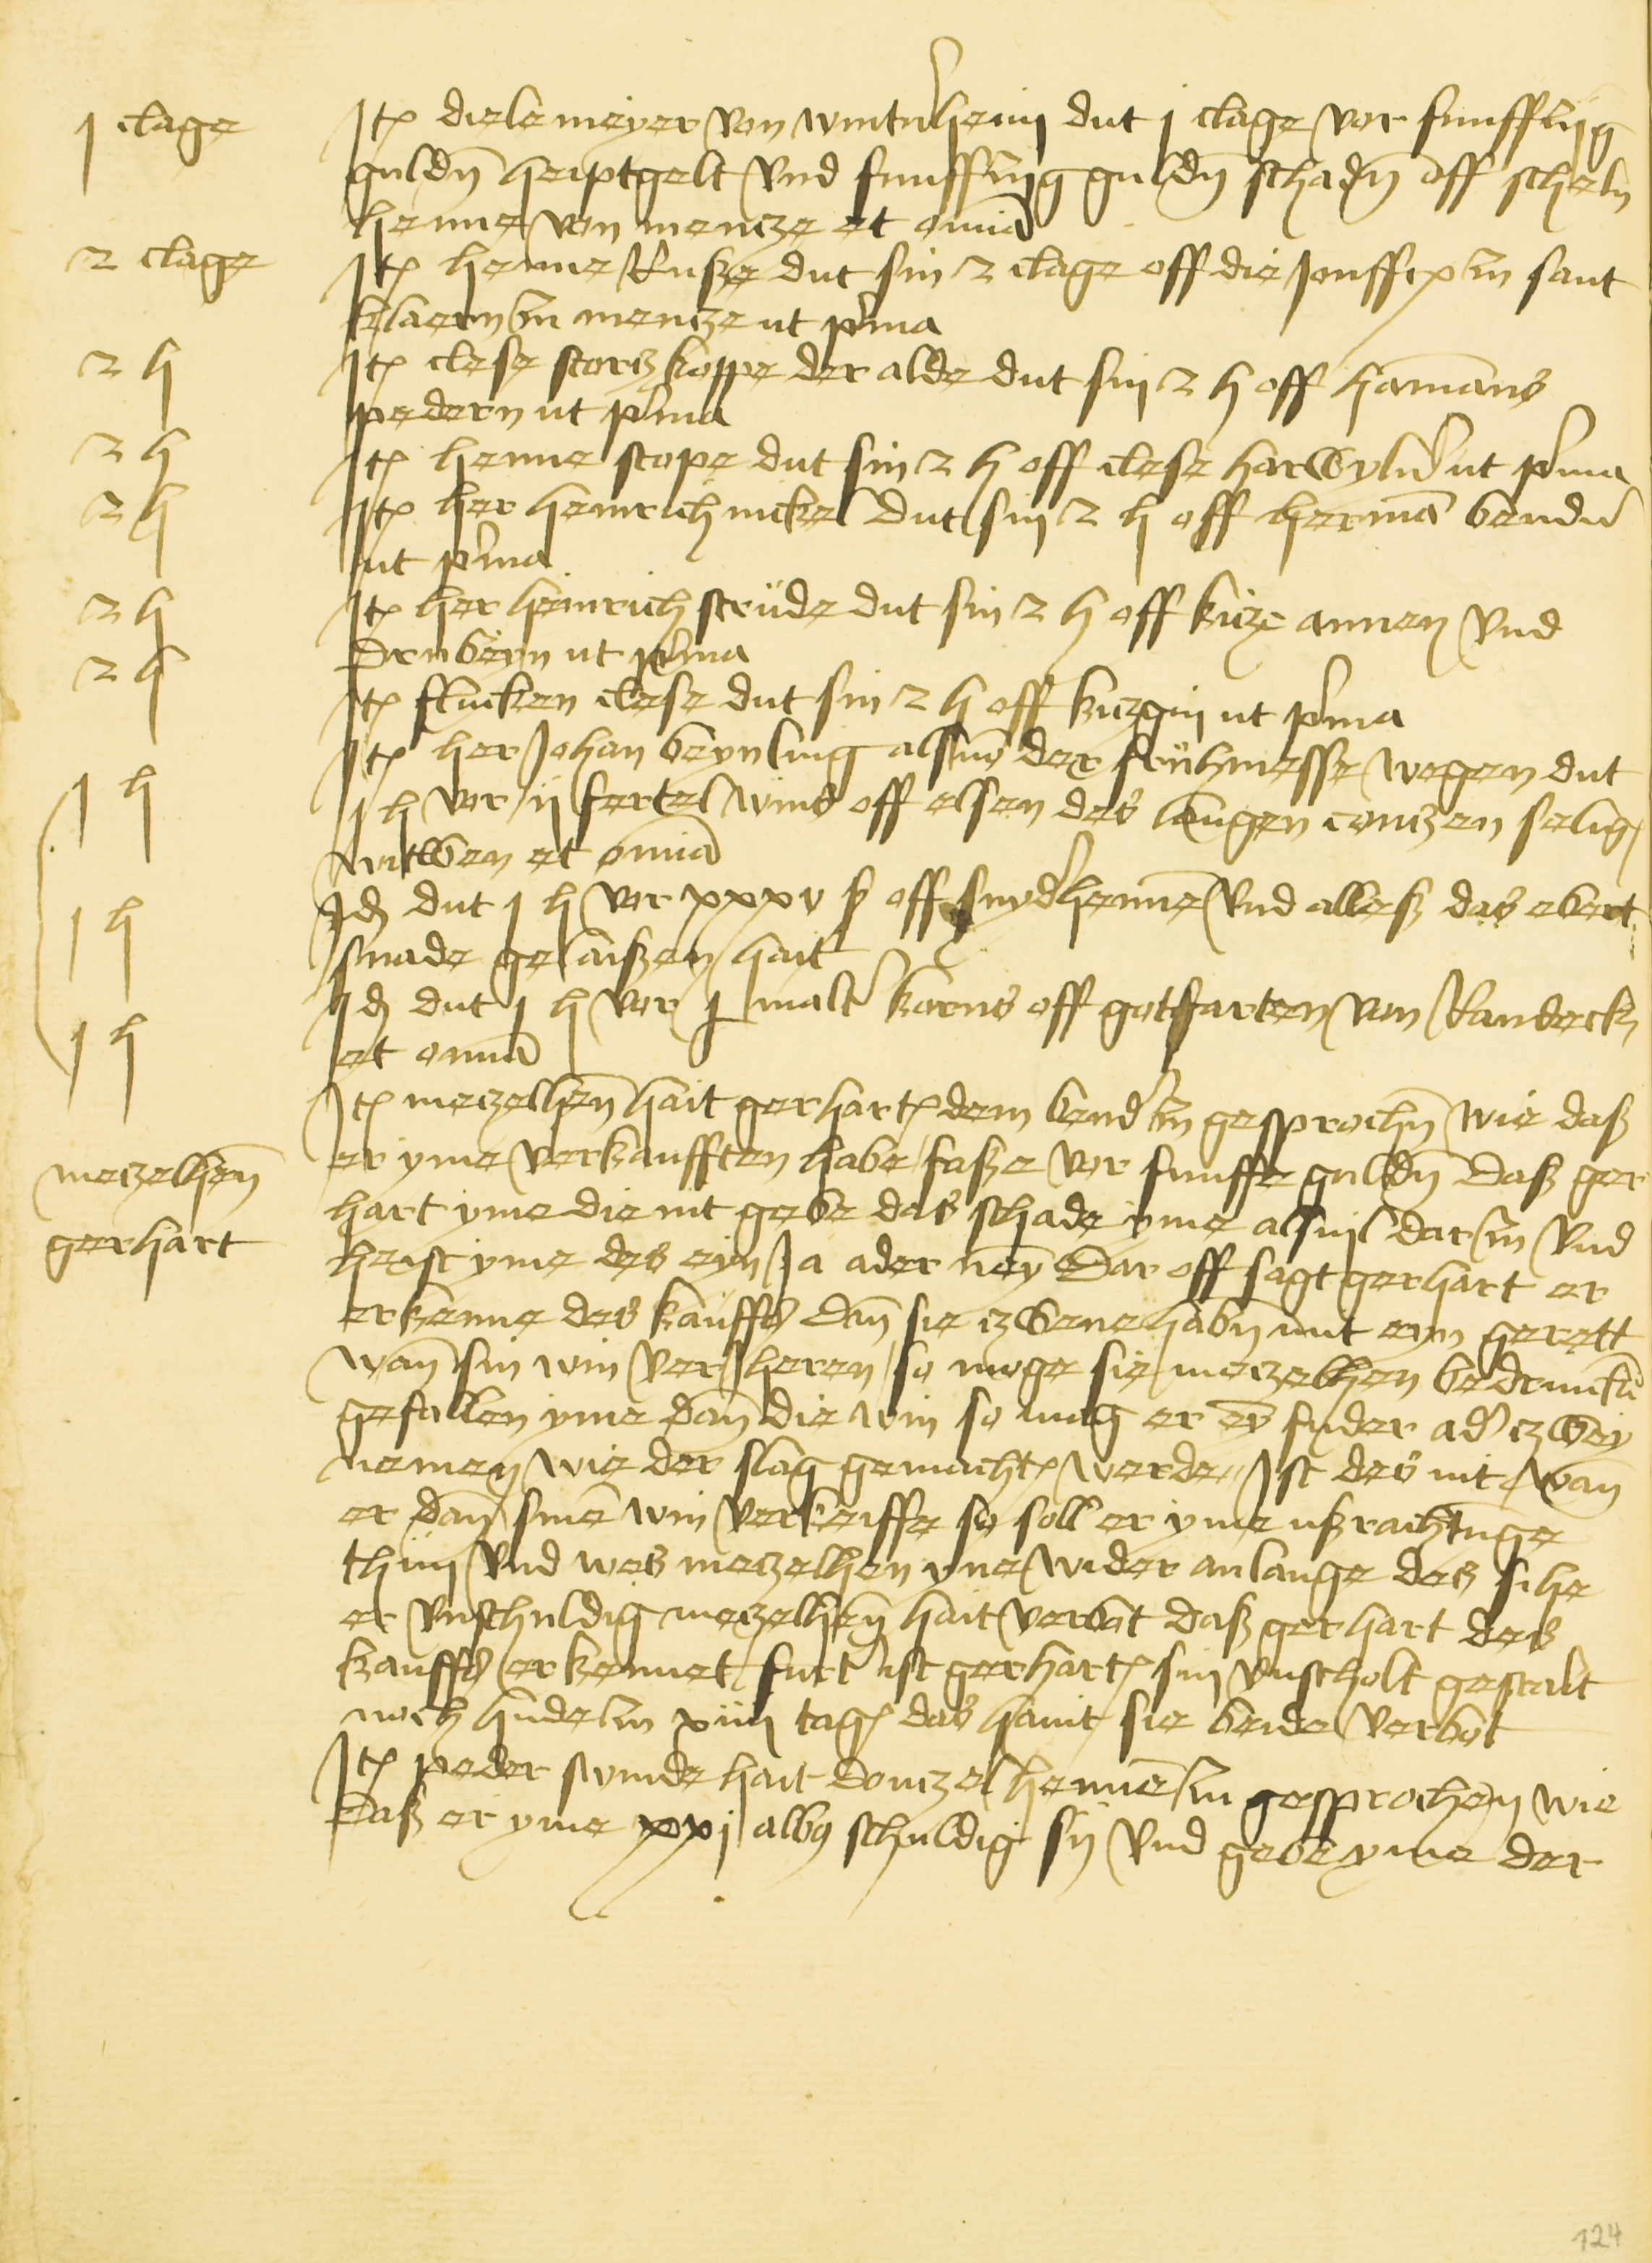 1 clage
Jt(em) diele meyer von wintr(n)heim dut j clage vor funfftzig
guld(e)n heuptgelt vnd funfftzig guld(e)n schad(e)n off scheln
henne von mencze et o(mn)ia
2 clage
Jt(em) henne Ruße dut sin 2 clage off die jonff(rauen) in sant
klaern in mencze ut p(ri)ma
2 h
Jt(em) clese storczkoppe der alde dut sin 2 h off hamans
pedern ut p(ri)ma
2 h
Jt(em) henne stope dut sin 2 h off clese harwyl(er) ut p(ri)ma
2 h
Jt(em) her heinrich nickel dut sin 2 h off herma(n) bend(er)
ut p(ri)ma
2 h
Jt(em) her heinrich strude dut sin 2 h off kicze annen vnd
drubeyn ut p(ri)ma
2 h
Jt(em) flucken clese dut sin 2 h off kiczgin ut p(ri)ma
Jt(em) her Johan beynling als von der fruhmesse wegen dut
1 h
j h vor ij fertel wins off elsen des langen conczen selig(en)
witwen et o(mn)ia
1 h
Jd(em) dut j h vor xxxv ß off snyd(er)henne(n) vnd alleß das ebert
snade gelaißen hait
1 h
Jd(em) dut j h vor j malt(er) korns off gotfarten von Randeck
et o(mn)ia
Jt(em) meczelhen(ne) hait gerhart(en) dem bend(er) in gesproch(e)n wie daß
meczelhen(ne)
er yme verkaufften habe faße vor funffe guld(e)n daß ger
gerhart
hart yme die nit gebe das schade yme als vil dar in vnd
heist yme des eyn ja ader ney(n) Dar off sagt gerhart er
erkenne des kauffs dan sie zwene hab(e)n mit eyn gerett
wan sin win ver jheren so moge sie meczelhen bedrinck(en)
gefallen yme dan die win so mag er ey(n) fuder ad(er) zwey
nemen wie der slag gemacht(en) werde Jst des nit wan
er dan sine(n) win verkeiffe so soll er yme ußrachtu(n)ge
thun vnd wes meczelhen yne wider anlange des sihe
er vnschuldig meczelhen(ne) hait verbot daß gerhart des
kauffs erkennet furt(er) ist gerhart(en) sin vnscholt gestalt
noch hude in xiiij tag(en) das haint sie beide verbot
Jt(em) peder swinde hait donczel henne(n) in gesprochen wie
daß er yme xxj alb(us) schuldig sij vnd gebe yme der
124